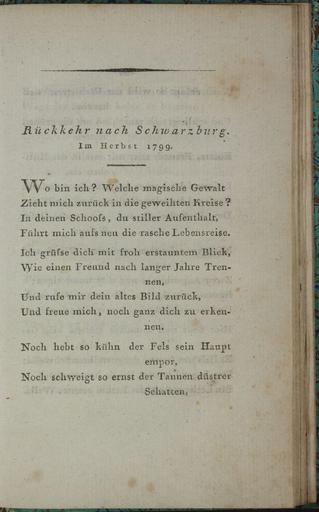 Rückkehr nach Schwarzburg.
Im Herbst 1799.
Wo bin ich? Welche magische Gewalt
Zieht mich zurück in die geweihten Kreise?
In deinen Schoofs, du stiller Aufenthalt,
Führt mich aufs neu die rasche Lebensreise.
Ich grüfse dich mit froh erstauntem Blick,
Wie einen Freund nach langer Jahre Tren-
nen,
Und rufe mir dein altes Bild zurück,
Und freue mich, noch ganz dich zu erken-
nen.
Noch hebt so kühn der Fels sein Haupt
empor,
Noch schweigt so ernst der Tannen düstrer
Schatten,